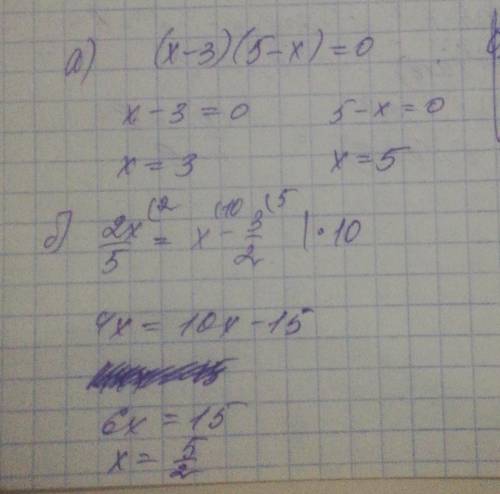 а) (x-3)(5-x)=0
x-3=0 5-x=0
x=3 x=5
б) 2x/5 (2 = x (10 - 3/2 (5 | · 10
4x = 10x - 15
6x = 15
x = 5/2